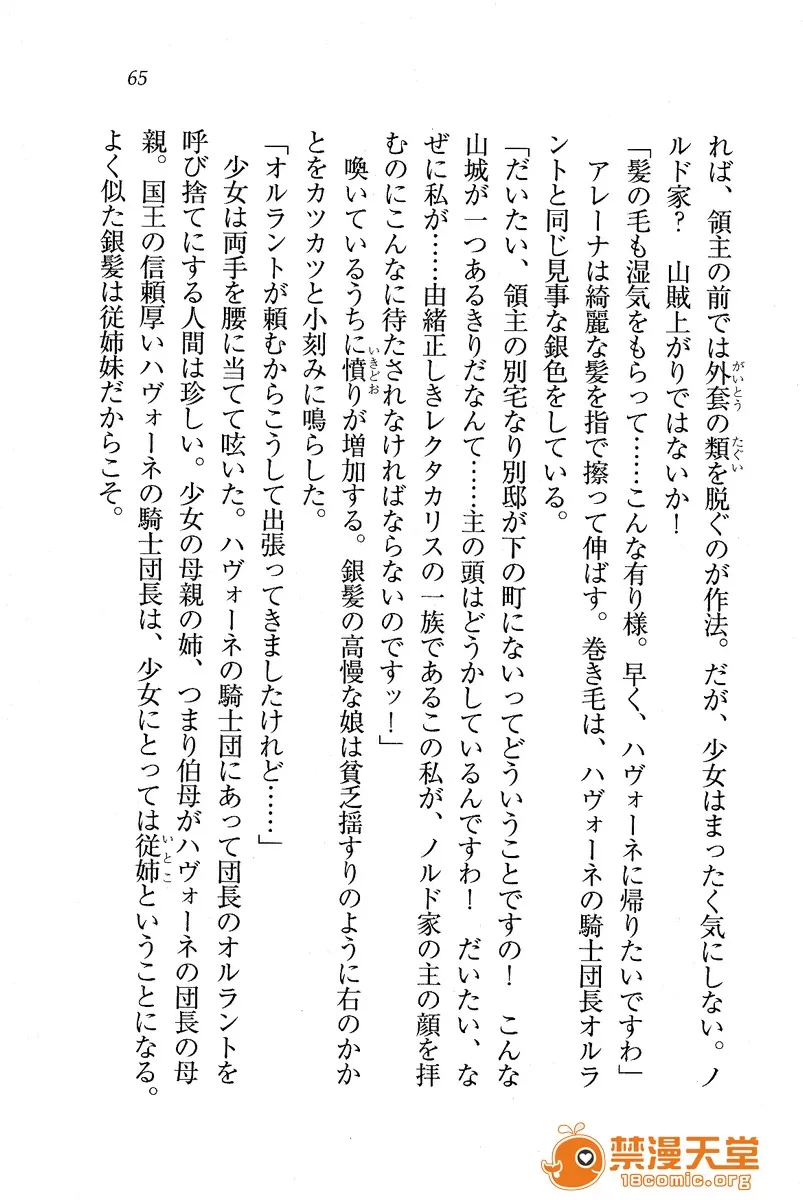 65
れば、領主の前では外套の類を脱ぐのが作法。だが、少女はまったく気にしない。ノ
ルド家？　山賊上がりではないか！
「髪の毛も湿気をもらって……こんな有り様。早く、ハヴォーネに帰りたいですわ」
アレーナは綺麗な髪を指で擦って伸ばす。巻き毛は、ハヴォーネの騎士団長オルラ
ントと同じ見事な銀色をしている。
「だいたい、領主の別宅なり別邸が下の町にないってどういうことですの！　こんな
山城が一つあるきりだなんて……主の頭はどうかしているんですわ！　だいたい、な
ぜに私が……由緒正しきレクタカリスの一族であるこの私が、ノルド家の主の顔を拝
むのにこんなに待たされなければならないのですッ！」
喚いているうちに憤りが増加する。銀髪の高慢な娘は貧乏揺すりのように右のかか
とをカツカツと小刻みに鳴らした。
「オルラントが頼むからこうして出張ってきましたけれど……」
少女は両手を腰に当てて呟いた。ハヴォーネの騎士団にあって団長のオルラントを
呼び捨てにする人間は珍しい。少女の母親の姉、つまり伯母がハヴォーネの団長の母
親。国王の信頼厚いハヴォーネの騎士団長は、少女にとっては従姉ということになる。
よく似た銀髪は従姉妹だからこそ。
がいとう
たぐい
いきどお
いとこ
禁漫天堂
18comic.org